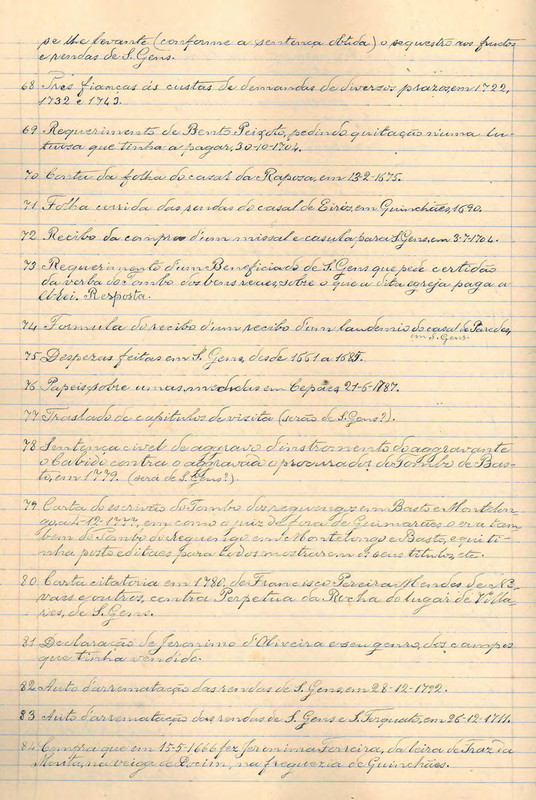 se lhe levante (conforme a sentença obtida) o sequestro aos fructos
e rendas de S. Gens.
68 Três fianças ás custas de demandas de diversos prazos, em 1722,
1732 e 1743.
69 Requerimento de Bento Peixoto, pedindo quitação n'uma lu-
tuosa que tinha a pagar, 30-10-1704.
70 Conta da folha do casal da Raposa, em 13-2-1675.
71 Folha corrida das rendas do casal de Eiriz, em Guinchães, 1690.
72 Recibo da compra d'um missal e casula para S. Gens, em 3-7-1704.
73 Requerimento d'um Beneficiado de S. Gens que pede certidão
da verba do Tombo dos bens sobre o que a dita egreja paga a
Resposta.
74 Formula do recibo d'um recibo d'um laudemio do casal de Paredes,
em S. Gens
75 Despezas feitas em S. Gens, desde 1661 a 1685.
76 Papeis sobre umas medidas em Cepães 21-6-1787.
77 Traslado de capitulos de visita (serão de S. Gens?).
78 Sentença civel de aggravo d'instromento do aggravante
o Cabido contra o aggravado o procurador do Tombo de Bas-
to, em 1779. (será de S. Gens?).
79 Carta do escrivão do Tombo dos reguengos em Basto e Montelon-
go, em como o juiz de fora de Guimarães o era tam-
bem do Tombo do Reguengo em Montelongo e Basto, e qui ti-
nha posto editaes para todos mostrarem os seus titulos, etc.
80 Carta citatoria em 1780, de Francisco Pereira Mendes de No-
vaes e outros, contra Perpetua da Rocha do lugar de Villa-
res, de S. Gens.
81 Declaração de Jeronimo d'Oliveira e seu genro, dos campos
que tinha vendido.
82 Auto d'arrematação das rendas de S. Gens, em 28-12-1722.
83 Auto d'arrematação das rendas de S. Gens e S. Torquato, em 26-12-1711.
84 Compra que em 15-5-1666 fez Jeronima Ferreira, da leira de Traz da
na veiga de na freguezia de Guinchães.